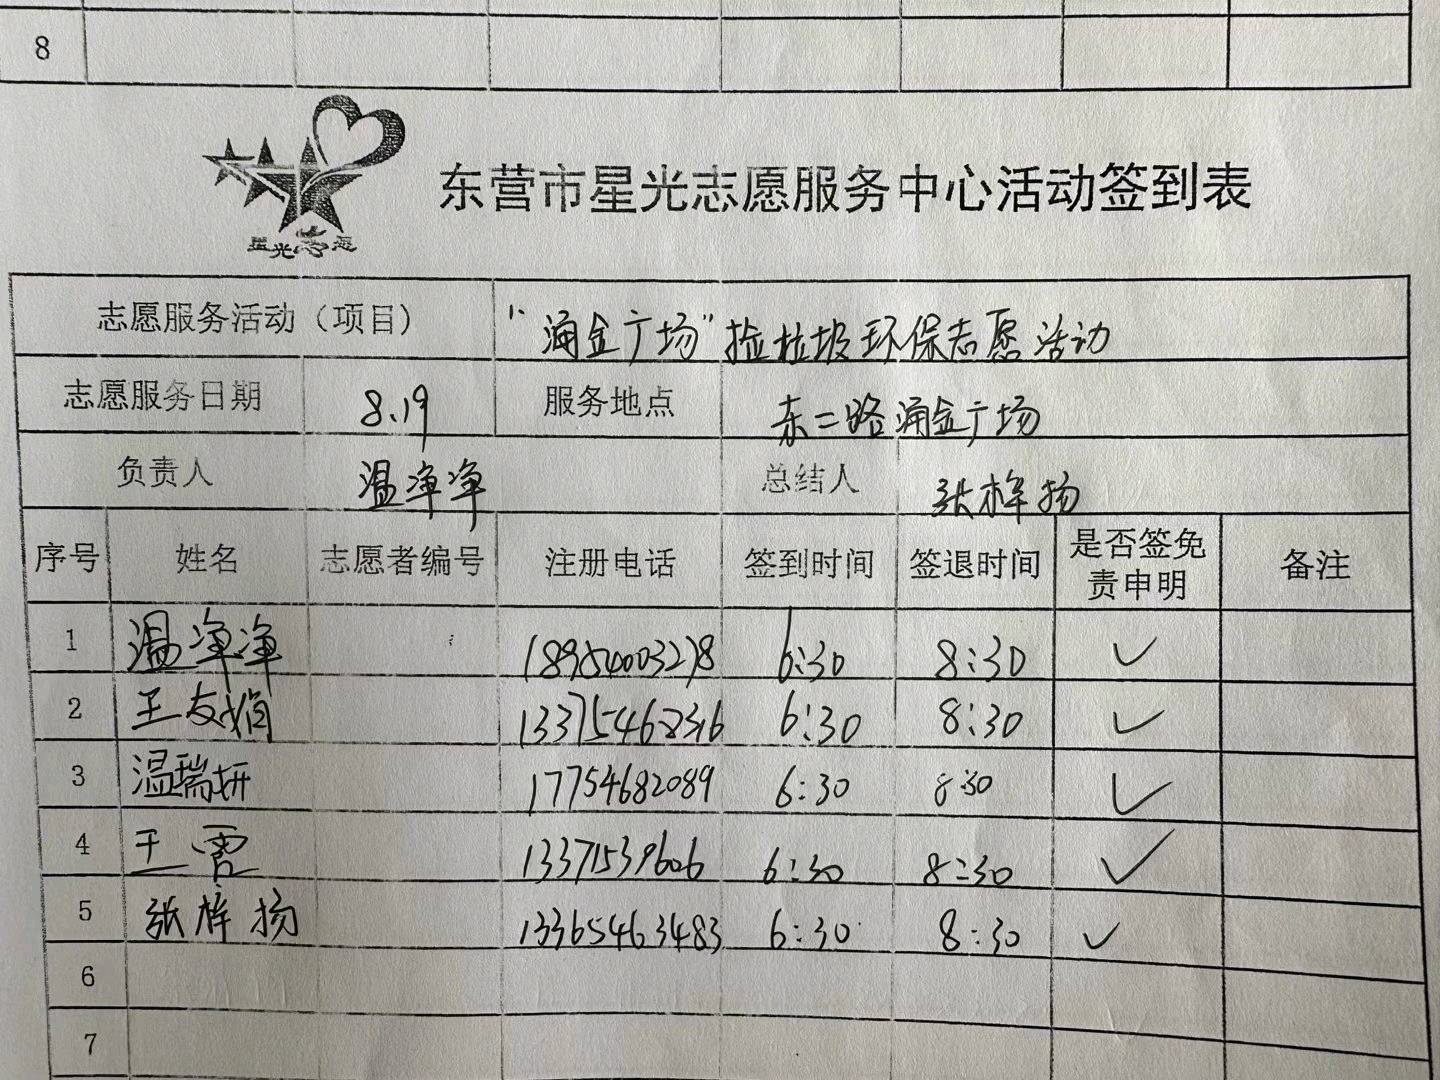 8
星光志愿
东营市星光志愿服务中心活动签到表
志愿服务活动（项目） "涌金广场"捡垃圾环保志愿活动
志愿服务日期 8.19 服务地点 东二路涌金广场
负责人 温净净 总结人 张梓扬
序号 姓名 志愿者编号 注册电话 签到时间 签退时间 是否签免责申明 备注
1 温净净 18954003278 6:30 8:30 ✓
2 王友娟 13375462316 6:30 8:30 ✓
3 温瑞妍 17754682089 6:30 8:30 ✓
4 王霞 13371539606 6:30 8:30 ✓
5 张梓扬 13365463483 6:30 8:30 ✓
6
7